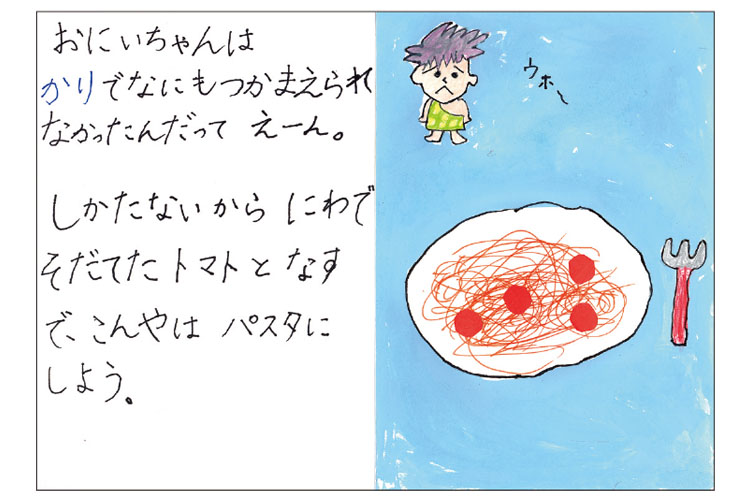 おにいちゃんは
かりでなにもつかまえられ
なかったんだって えーん。
しかたないから にわで
そだてた トマト と なす
で、こんやは パスタに
しよう。
ウホ〜